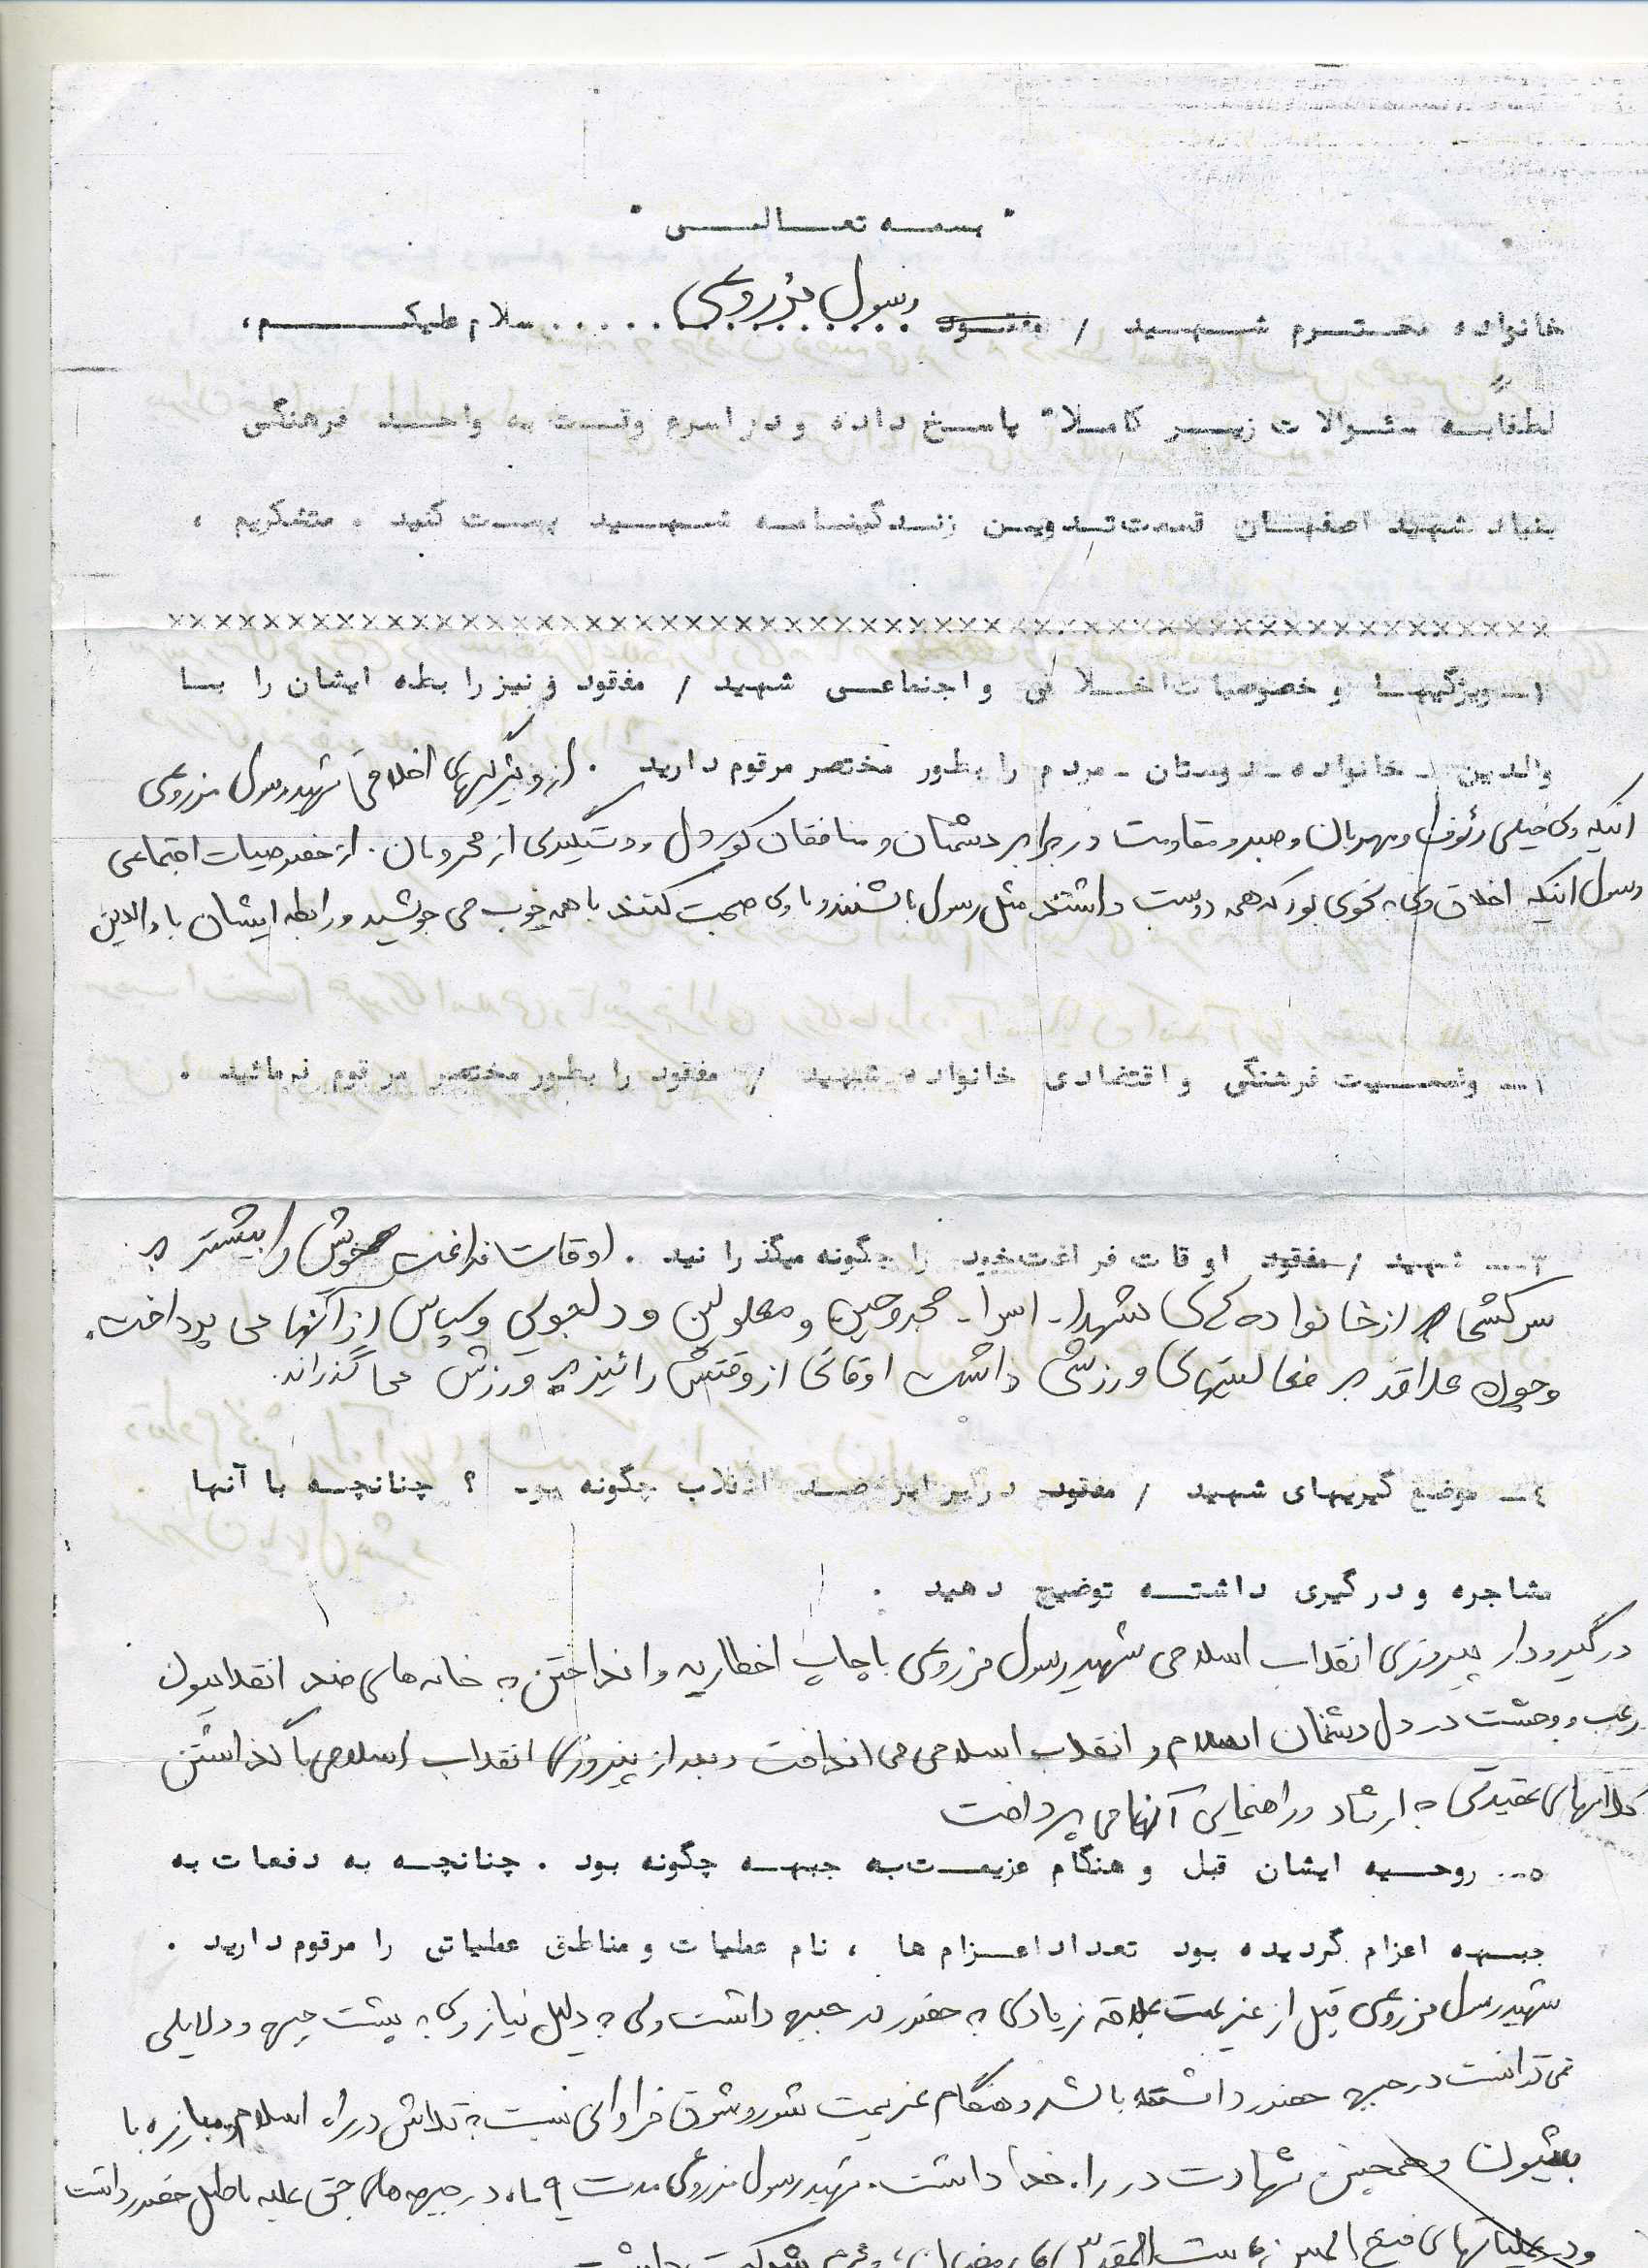 " بسمه تعالی "
خانواده محترم شهید / مفقود رسول مزروعی ..... سلام علیکم،
لطفا به سئوالات زیر کاملا" پاسخ داده و در اسرع وقت به واحد فرهنگی
بنیاد شهید اصفهان قسمت تدوین زندگینامه شهید پست کنید . متشکریم ،
××××××××××××××××××××××××××××××××××××××××××××××××××××××××
۱- ویژگیها و خصوصیات اخلاقی و اجتماعی شهید / مفقود و نیز رابطه ایشان را با
والدین - خانواده - دوستان - مردم را بطور مختصر مرقوم دارید . از ویژگیهای اخلاقی شهید رسول مزروعی
اینکه وی خیلی رئوف و مهربان و صبر و مقاومت در برابر دشمنان و منافقان کوردل و دستگیری از محرومان . از خصوصیات اجتماعی
رسول اینکه اخلاق وی به نحوی بود که همه دوست داشتند مثل رسول باشند و با وی صحبت کنند با همه خوب می جوشید و رابطه ایشان با والدین
۱- وضعیت فرهنگی و اقتصادی خانواده شهید / مفقود را بطور مختصر مرقوم فرمائید .
۳- شهید / مفقود اوقات فراغت خود را چگونه میگذرانید . اوقات فراغت خویش را بیشتر به
سرکشی از خانواده های شهدا - اسرا - مجروحین و معلولین و دلجویی و سپاس از آنها می پرداخت.
و چون علاقه به فعالیتهای ورزشی داشت اوقاتی از وقتش را نیز به ورزش می گذراند.
٤- موضع گیریهای شهید / مفقود در برابر ضد انقلاب چگونه بود ؟ چنانچه با آنها
مشاجره و درگیری داشته توضیح دهید .
در گیرودار پیروزی انقلاب اسلامی شهید رسول مزروعی با چاپ اخطاریه و انداختن به خانه های ضد انقلابیون
رعب و وحشت در دل دشمنان اسلام و انقلاب اسلامی می انداخت و بعد از پیروزی انقلاب اسلامی با گذاشتن
کلاسهای عقیدتی به ارشاد و راهنمایی آنها می پرداخت
٥- روحیه ایشان قبل و هنگام عزیمت به جبهه چگونه بود . چنانچه به دفعات به
جبهه اعزام گردیده بود تعداد اعزام ها ، نام عملیات و مناطق عملیاتی را مرقوم دارید .
شهید رسول مزروعی قبل از عزیمت علاقه زیادی به حضور در جبهه داشت ولی به دلیل نیاز وی به پشت جبهه و دلایلی
نمی توانست در جبهه حضور داشته باشد و هنگام عزیمت شور و شوق فراوانی نسبت به تلاش در راه اسلام و مبارزه با
و همچنین شهادت در راه خدا داشت. شهید رسول مزروعی مدت ۹ ماه در جبهه های حق علیه باطل حضور داشت
و در عملیاتهای فتح المبین، بیت المقدس، رمضان، محرم شرکت داشت